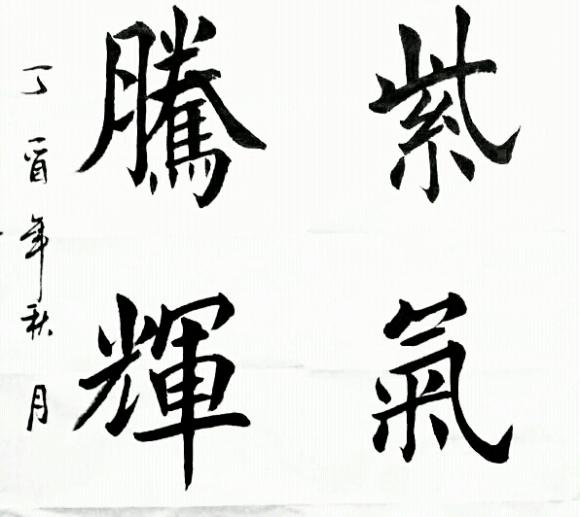 紫氣
騰輝
丁酉年秋月